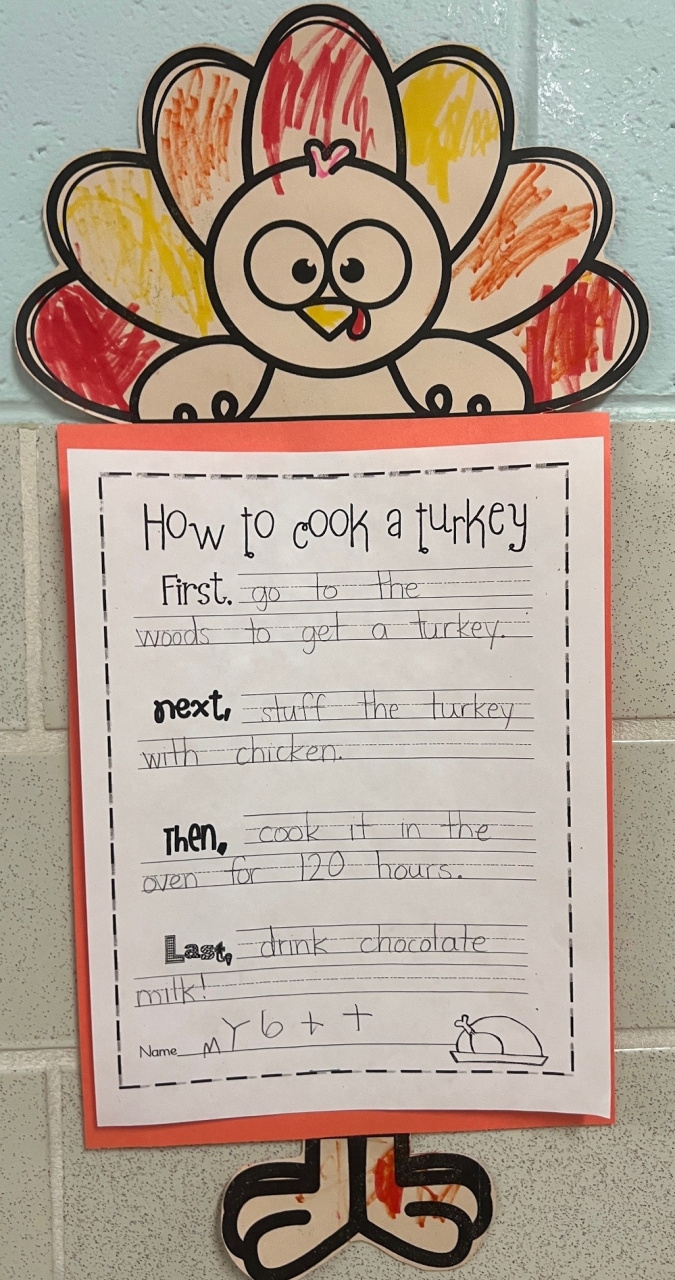 How to cook a turkey
First, go to the
woods to get a turkey.
next, stuff the turkey
with chicken.
Then, cook it in the
oven for 120 hours.
Last, drink chocolate
milk!
Name